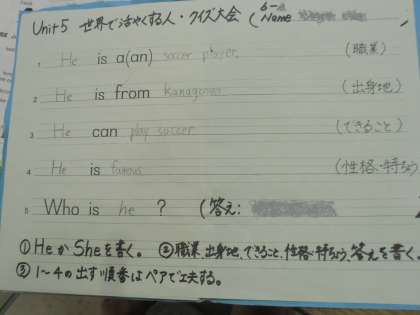 Unit 5 世界で活やくする人・クイズ大会 ( 6-
Name
1 He is a(an) soccer player. (職業)
2 He is from Kanagawa (出身地)
3 He can play soccer (できること)
4 He is famous (性格・特ちょう
5 Who is he ? (答え:
①HeかSheを書く。 ②職業、出身地、できること、性格・特ちょう、答えを書く。
③1〜4の出す順番はペアで工夫する。